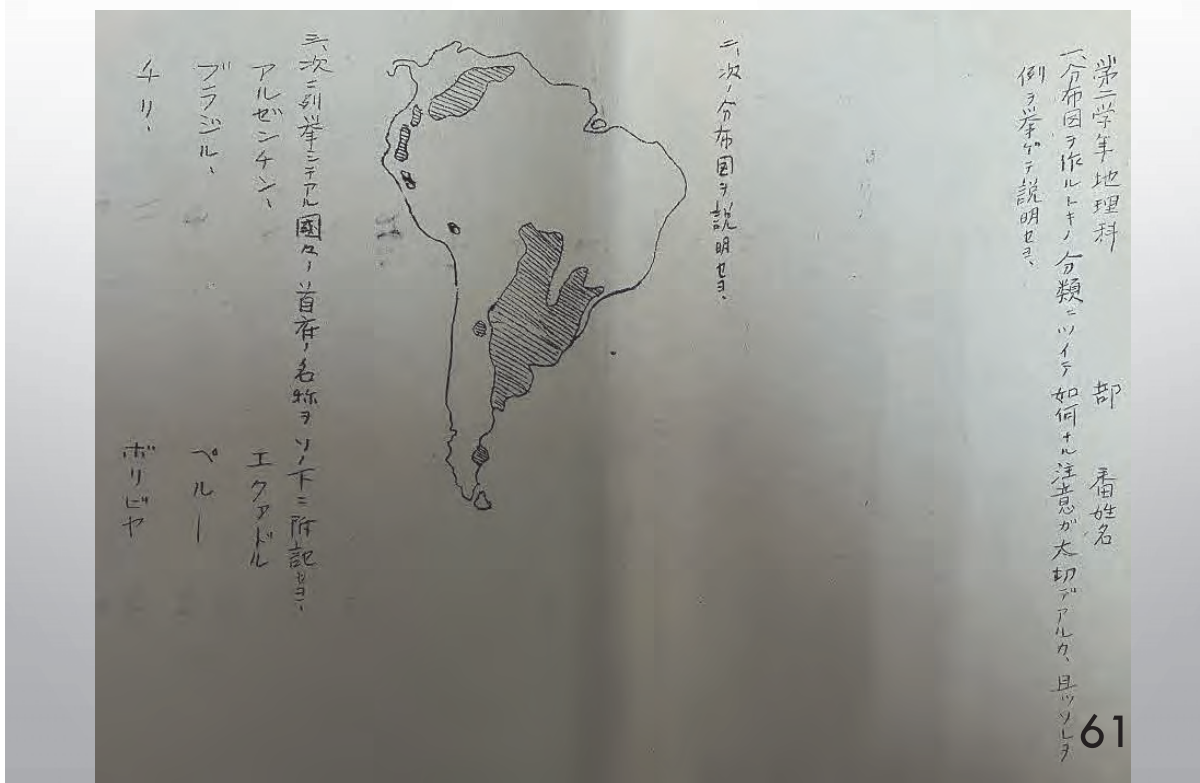 第二学年地理科 部 番姓名
一、分布図ヲ作ルトキノ分類ニツイテ如何ナル注意ガ大切デアルカ、且ツソレヲ
例ヲ挙ゲテ説明セヨ、
二、次ノ分布図ヲ説明セヨ、
三、次ニ列挙シテアル國々ノ首府ノ名称ヲソノ下ニ附記セヨ、
アルゼンチン、 エクアドル
ブラジル、 ペルー
チリ、 ボリビヤ
61